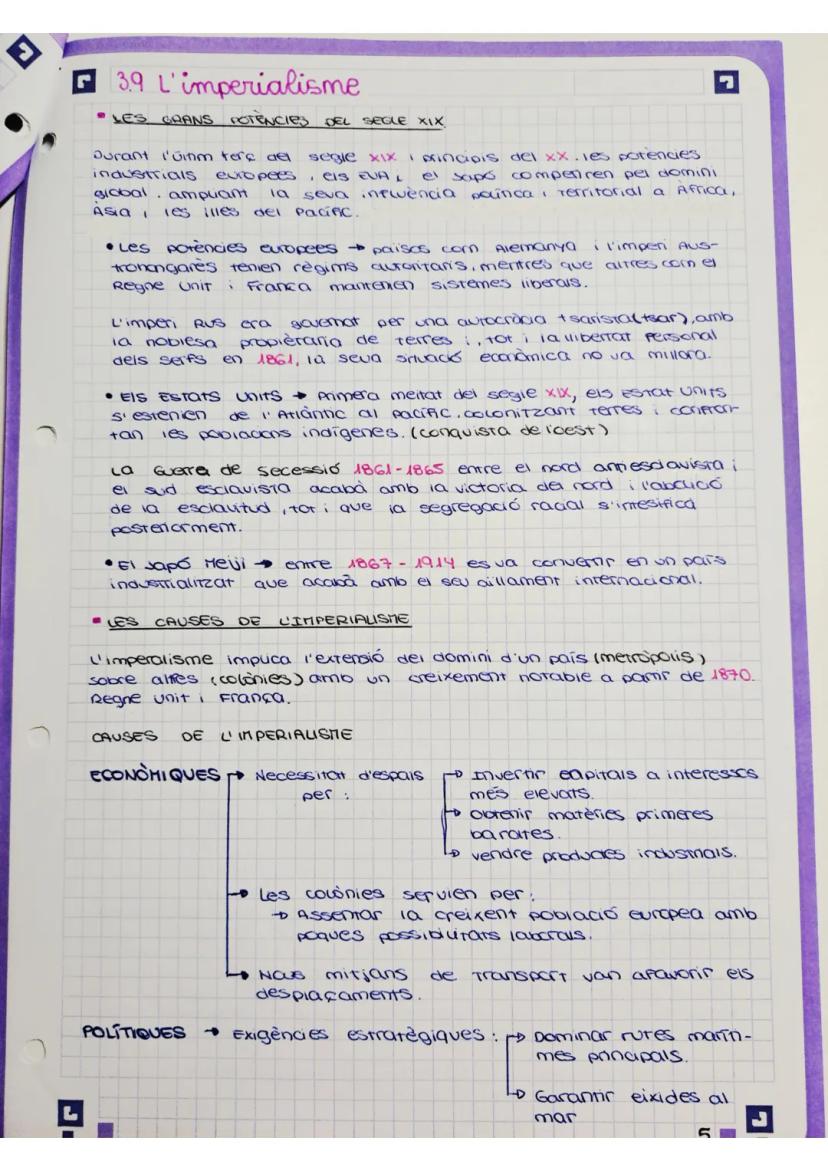 3.9 L'imperialisme
LES GRANS POTÈNCIES DEL SEGLE XIX
Durant l'últim terç del segle XIX i principis del XX. les potències
industrials europees, els EUA i el Japó competiren pel domini
global. ampliant la seva influència política i territorial a Àfrica,
Àsia i les illes del Pacífic.
• Les potències europees → països com Alemanya i l'imperi Aus-
trohongarès tenien règims autoritaris, mentres que altres com el
Regne Unit i França mantenien sistemes liberals.
L'imperi Rus era governat per una autocràcia tsarista (tsar), amb
la noblesa propietària de terres i, tot i la llibertat personal
dels serfs en 1861, la seva situació econòmica no va millora.
• Els Estats Units → Primera meitat del segle XIX, els Estat Units
s'estenien de l'Atlàntic al Pacífic, colonitzant terres i confron-
tan les poblacions indígenes. (conquista de l'oest)
La Guerra de Secessió 1861-1865 entre el nord antiesclavista i
el sud esclavista acabà amb la victoria del nord i l'abolició
de la esclavitud, tot i que la segregació racial s'intesifica
posteriorment.
• El Japó Meiji → entre 1867 - 1914 es va convertir en un país
industrialitzat que acabà amb el seu aillament internacional.
LES CAUSES DE L'IMPERIALISME
L'imperalisme implica l'extensió del domini d'un país (metròpolis)
sobre altres (colònies) amb un creixement notable a partir de 1870.
Regne Unit i França.
CAUSES DE L'IMPERIALISME
ECONÒMIQUES → Necessitat d'espais
per :
→ Invertir capitals a interessos
més elevats.
→ Obtenir matèries primeres
barates.
→ vendre productes industrials.
→ Les colònies servien per:
→ Assentar la creixent població europea amb
poques possibilitats laborals.
→ Nous mitjans de transport van afavorir els
desplaçaments.
POLÍTIQUES → Exigències estratègiques :
→ Dominar rutes maríti-
mes principals.
→ Garantir eixides al
mar
5